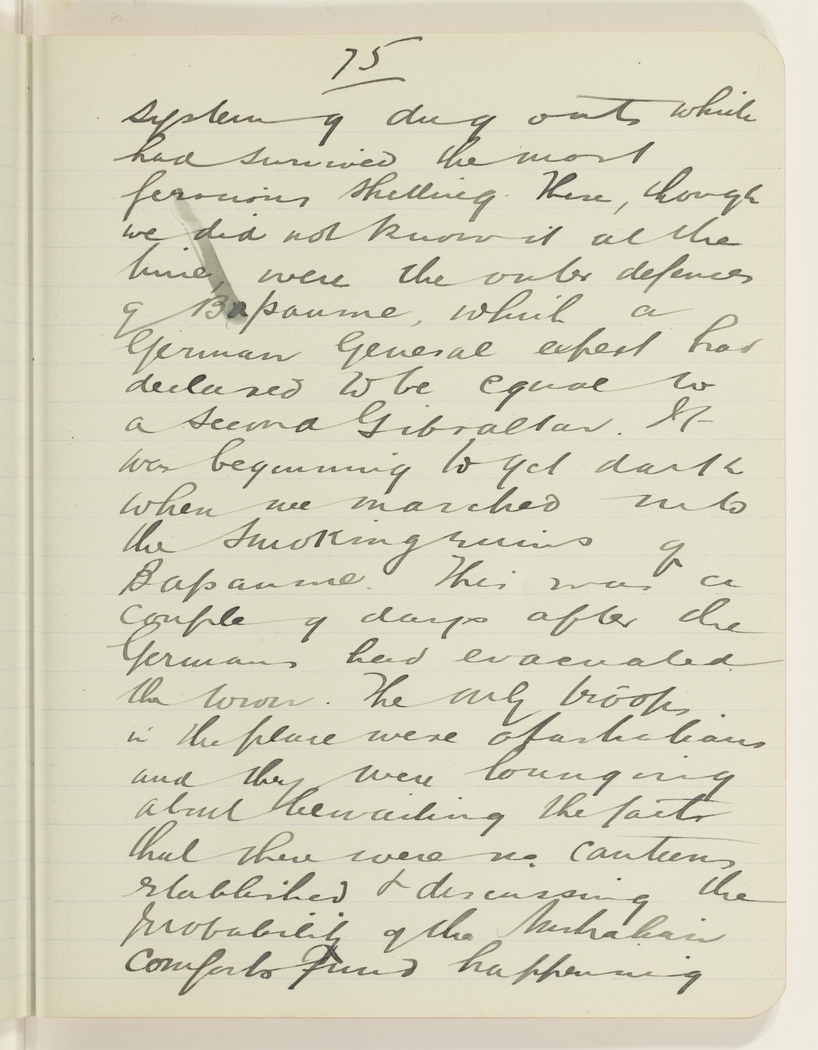 75
system of dug outs which
had survived the most
ferocious shelling. These, though
we did not know it at the
time, were the outer defences
of Bapaume, which a
German General expert had
declared to be equal to
a second Gibraltar. It
was beginning to get dark
when we marched into
the smoking ruins of
Bapaume. This was a
couple of days after the
Germans had evacuated
the town. The only troops
in the place were Australians
and they were lounging
about bewailing the fact
that there were no canteens
established & discussing the
probability of the Australian
Comforts Fund happening